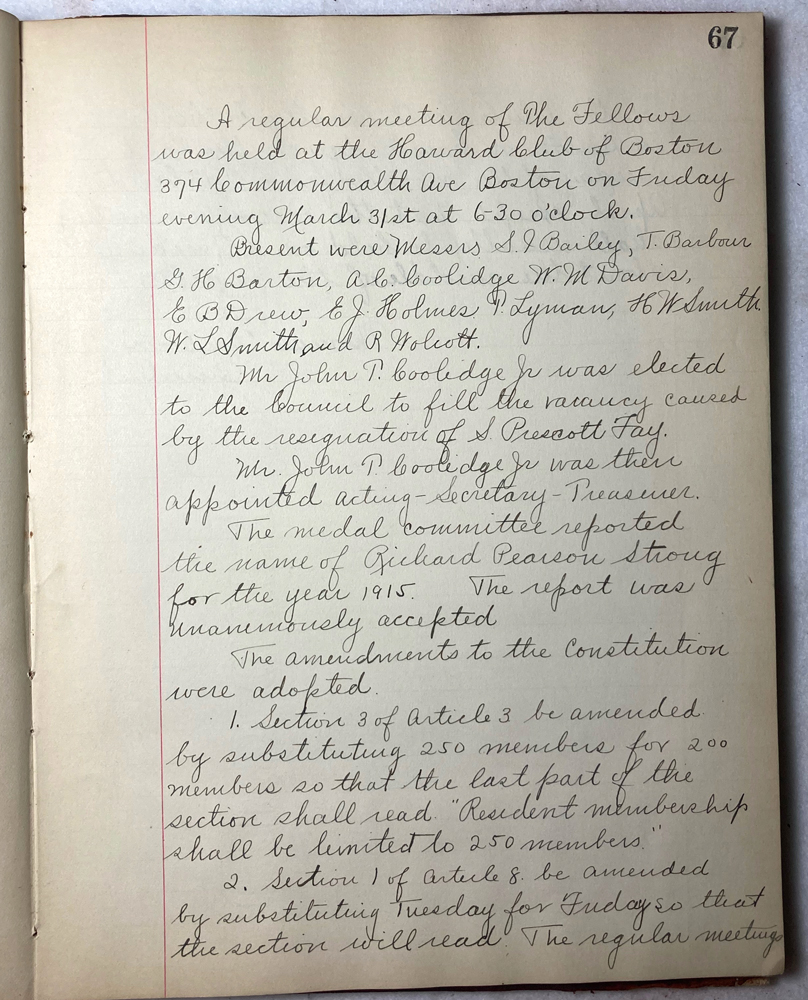 67
A regular meeting of The Fellows
was held at the Harvard Club of Boston
374 Commonwealth Ave Boston on Friday
evening March 31st at 6-30 o'clock.
Present were Messrs S. I Bailey, T. Barbour
G. H Barton, A. C. Coolidge W. M Davis,
E B Drew, E J. Holmes T. Lyman, H W Smith
W. L Smith, and R Wolcott.
Mr John T. Coolidge Jr was elected
to the Council to fill the vacancy caused
by the resignation of S. Prescott Fay.
Mr. John T. Coolidge Jr was then
appointed acting-Secretary-Treasurer.
The medal committee reported
the name of Richard Pearson Strong
for the year 1915. The report was
unanimously accepted
The amendments to the Constitution
were adopted.
1. Section 3 of Article 3 be amended
by substituting 250 members for 200
members so that the last part of the
section shall read. "Resident membership
shall be limited to 250 members."
2. Section 1 of Article 8. be amended
by substituting Tuesday for Friday so that
the section will read. The regular meetings